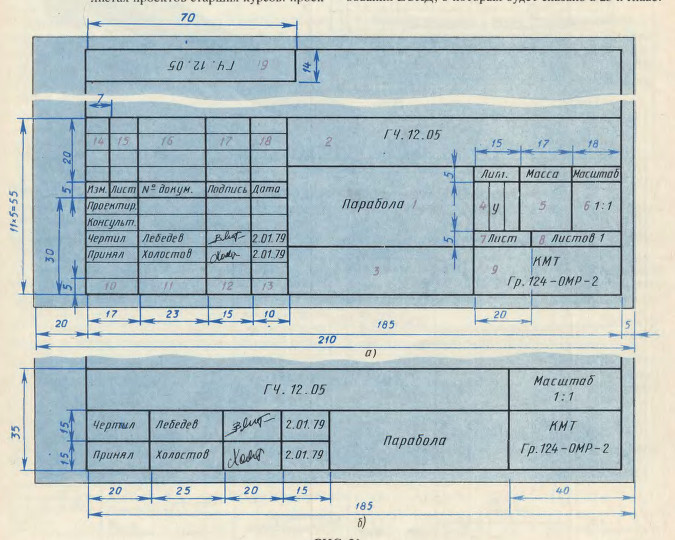 70
ГЧ. 12. 05 б
14
7
14 15 16 17 18
2 ГЧ. 12.05
15 17 18
11×5=55
20
5
Изм. Лист № докум. Подпись Дата
5 Лит. Масса Масштаб
Проектир.
Консульт.
Парабола 1
4 у 5 6 1:1
Чертил Лебедев 2.01.79
5 7 Лист 8 Листов 1
30
Принял Холостов 2.01.79
3 9 КМТ
5 10 11 12 13
Гр. 124-ОМР-2
17 23 15 10 20
20 185 5
210
а)
ГЧ. 12. 05
Масштаб
1:1
35
15 Чертил Лебедев 2.01.79
Парабола
КМТ
15 Принял Холостов 2.01.79
Гр. 124-ОМР-2
20 25 20 15 40
185
б)